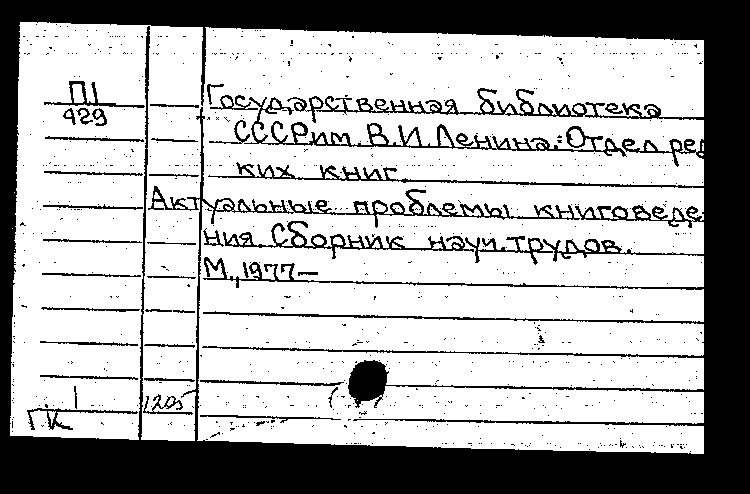 П1
429
Государственная библиотека
СССР им. В.И.Ленина. Отдел ред
ких книг.
Актуальные проблемы книговеде
ния. Сборник науч. трудов.
М., 1977—
1
1205
ГК